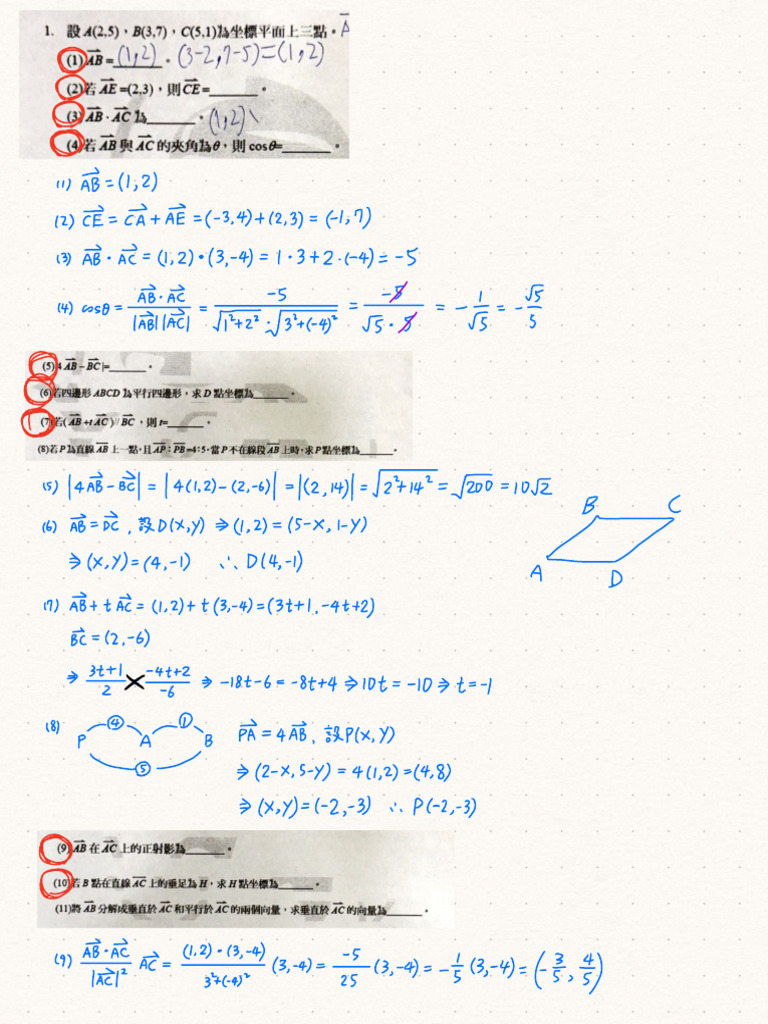 1. 設A(2,5)，B(3,7)，C(5,1)為坐標平面上三點。
(1) AB = (1,2) 。 (3-2,7-5)=(1,2)
(2)若 AE =(2,3)，則 CE =______。
(3) AB · AC 為______。 (1,2)、
(4)若 AB 與 AC 的夾角為θ，則 cosθ=______。
(1) AB = (1,2)
(2) CE = CA + AE = (-3,4)+(2,3) = (-1,7)
(3) AB · AC = (1,2)·(3,-4) = 1·3+2·(-4) = -5
(4) cosθ = AB·AC / |AB||AC| = -5 / √1²+2² · √3²+(-4)² = -5 / √5·5 = -1/√5 = -√5/5
(5)|4 AB - BC |=______。
(6)若四邊形 ABCD 為平行四邊形，求 D 點坐標為______。
(7)若( AB +t AC )// BC ，則 t=______。
(8)若P為直線 AB 上一點，且 AP：PB =4：5，當P不在線段 AB 上時，求P點坐標為______。
(5) |4AB - BC| = |4(1,2)-(2,-6)| = |(2,14)| = √2²+14² = √200 = 10√2
(6) AB = DC, 設D(x,y) ⇒ (1,2) = (5-x, 1-y)
⇒ (x,y) = (4,-1) ∴ D(4,-1)
B C
A D
(7) AB + t AC = (1,2) + t(3,-4) = (3t+1, -4t+2)
BC = (2,-6)
⇒ 3t+1/2 × -4t+2/-6 ⇒ -18t-6 = -8t+4 ⇒ 10t = -10 ⇒ t = -1
(8) P ④ A ① B ⑤
PA = 4AB, 設P(x,y)
⇒ (2-x, 5-y) = 4(1,2) = (4,8)
⇒ (x,y) = (-2,-3) ∴ P(-2,-3)
(9) AB 在 AC 上的正射影為______。
(10)若 B 點在直線 AC 上的垂足為 H，求 H 點坐標為______。
(11)將 AB 分解成垂直於 AC 和平行於 AC 的兩個向量，求垂直於 AC 的向量為______。
(9) AB·AC / |AC|² AC = (1,2)·(3,-4) / 3²+(-4)² (3,-4) = -5/25 (3,-4) = -1/5 (3,-4) = (-3/5, 4/5)